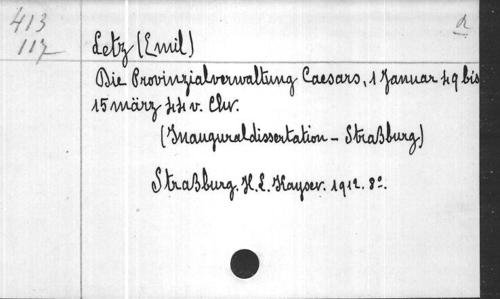 413
117
a
Letz (Emil)
Die Provinzialverwaltung Caesars, 1 Januar 49 bis
15 märz 44 v. Chr.
(Inauguraldissertation - Straßburg)
Straßburg. H. L. Kayser. 1912. 8º.